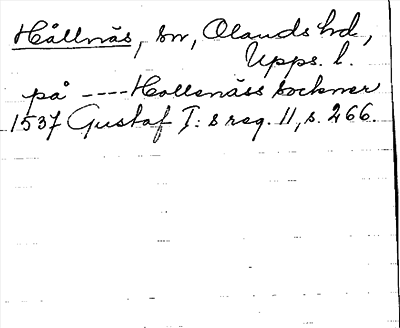 Hållnäs, sn, Olands hd,
Upps. l.
på ---- Hollsnäss sockner
1537 Gustaf I:s reg. 11, s. 266.